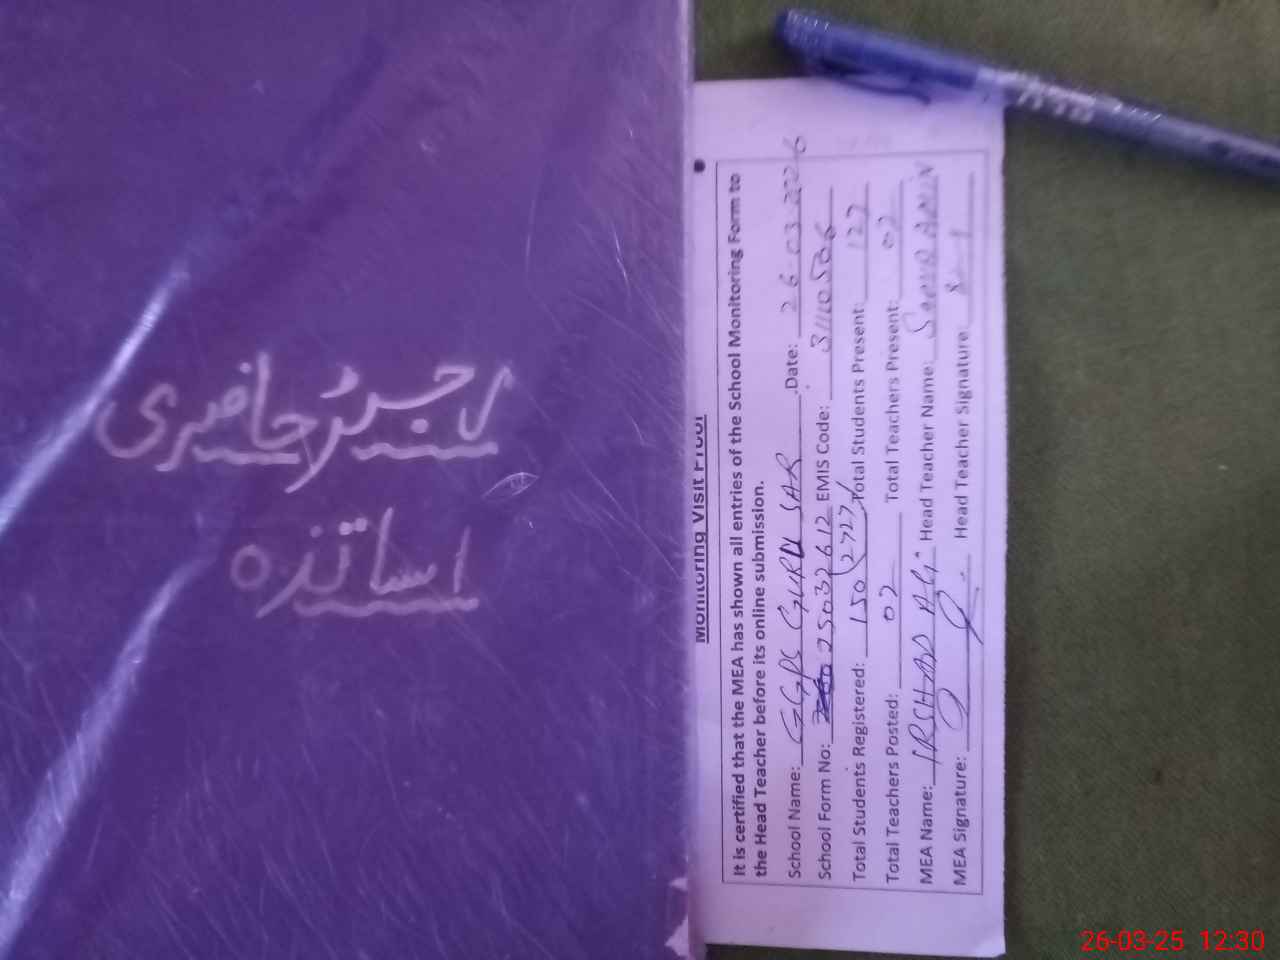 رجسٹر حاضری
اساتذہ
Monitoring Visit Proof
It is certified that the MEA has shown all entries of the School Monitoring Form to
the Head Teacher before its online submission.
School Name: GGPS GURU SAR Date: 26-03-2026
School Form No: 25032612 EMIS Code: 31110506
Total Students Registered: 150 (2727) Total Students Present: 127
Total Teachers Posted: 02 Total Teachers Present: 02
MEA Name: IRSHAD ALI Head Teacher Name:
MEA Signature: Head Teacher Signature:
26-03-25 12:30